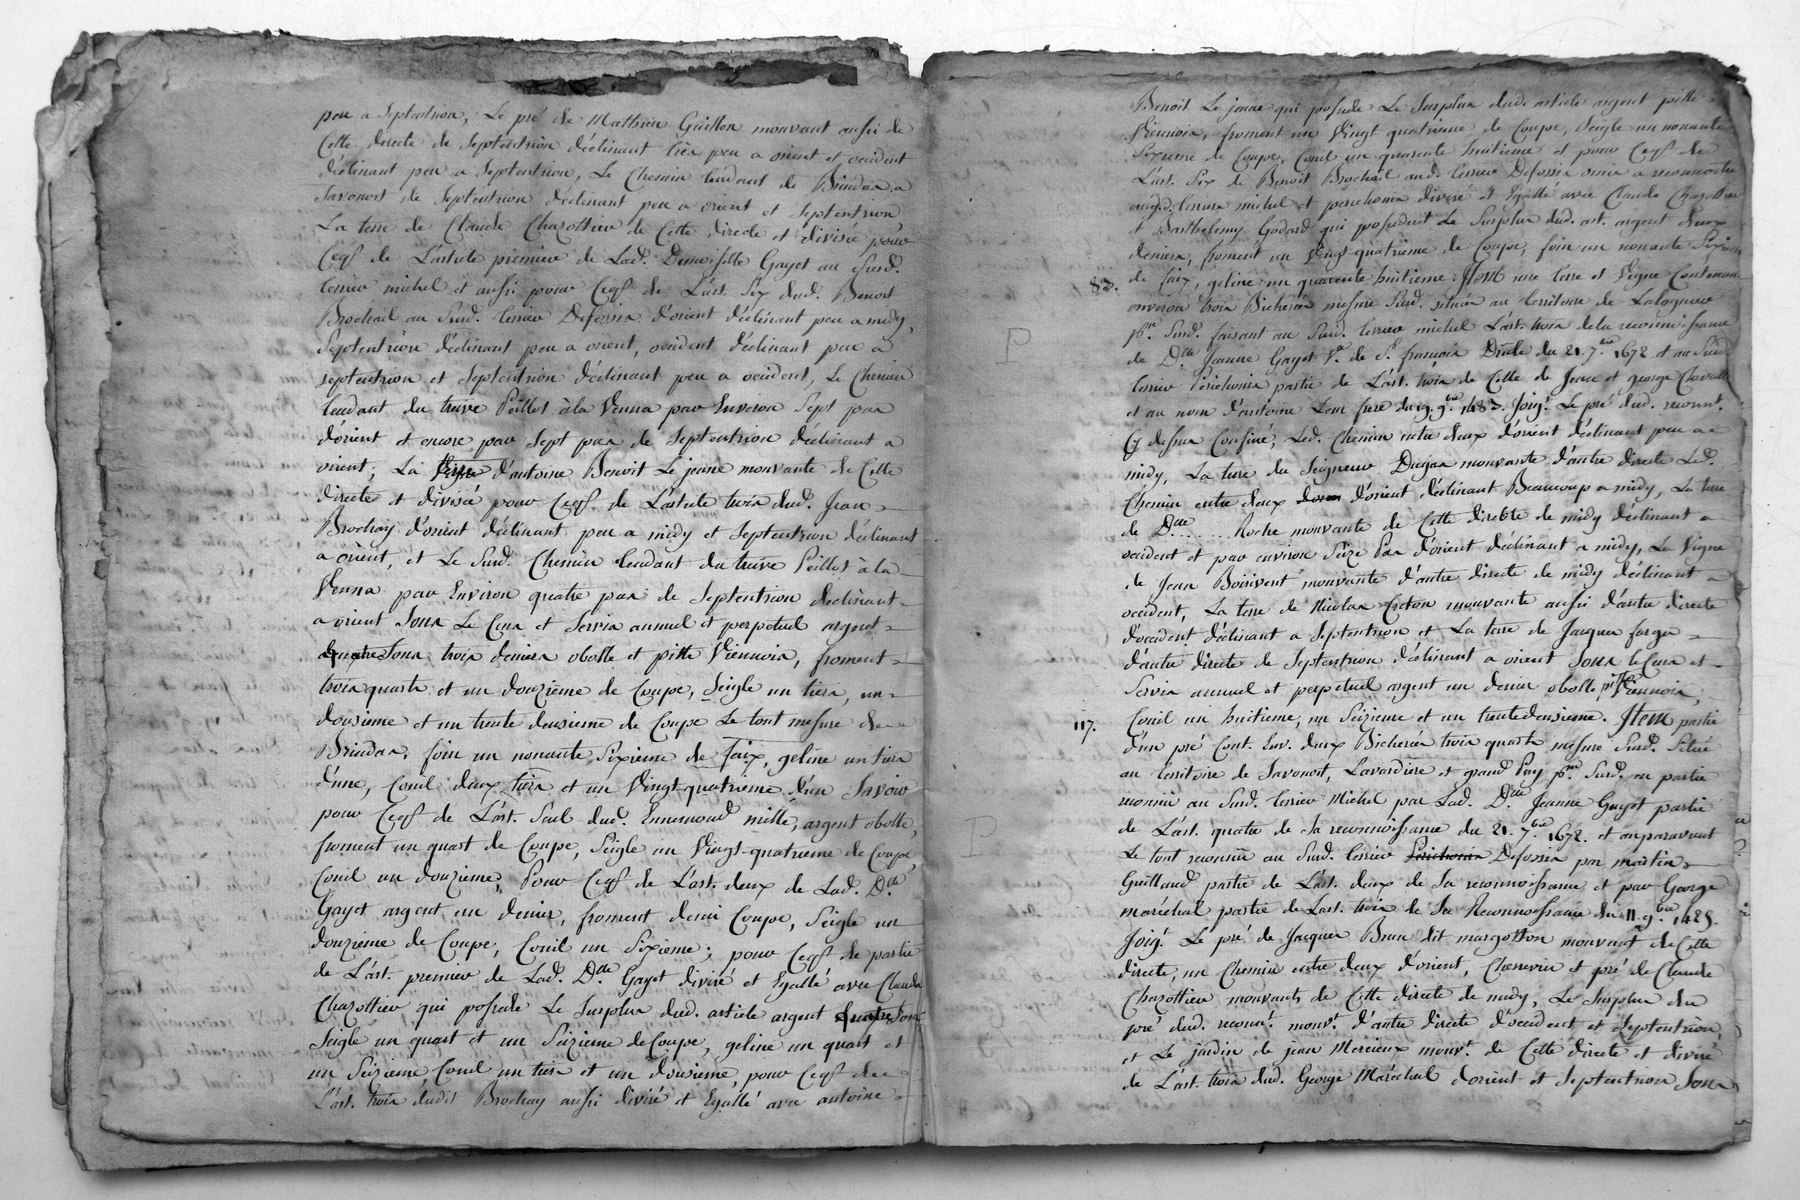 peu a Septentrion, Le pré de Mathieu Guillon mouvant aussi de
Cette directe de Septentrion déclinant très peu a orient et occident
déclinant peu a Septentrion, Le Chemin tendant de Brindas a
Savonost de Septentrion déclinant peu a orient et Septentrion
La terre de Claude Chazottier de Cette directe et divisée pour
Ceqf de L'article première de Lad. Demoiselle Gayot au Surd.
terrier michel et aussi pour Ceqf de L'art. Six dud. Benoit
Brochail au Surd. terrier Defossia d'orient déclinant peu a midy,
Septentrion déclinant peu a orient, occident déclinant peu a
septentrion et Septentrion déclinant peu a occident, Le Chemin
tendant du treive Peillot à la Venna par Environ Sept pas
d'orient et encore par Sept pas de Septentrion déclinant a
orient, La d'antoine Benoit Le jeune mouvante de Cette
directe et divisée pour Ceqf. de L'article trois dud. Jean
Brochay d'orient déclinant peu a midy et Septentrion déclinant
a orient, et Le Surd. Chemin tendant du treive Peillot à la
Venna par Environ quatre pas de Septentrion declinant
a orient Sous Le Cens et Servis annuel et perpetuel argent
quatre Sous trois deniers obolle et pitte Viennois, froment
trois quarts et un douzième de Coupe, Seigle un tiers, un
douzieme et un trente deuxieme de Coupe Le tout mesure de
Brindas, foin un nonante Sixieme de faix, geline un tiers
d'une, Conil deux tiers et un Vingt-quatrieme d'un Savoir
pour Ceqf de L'art. Seul dud. Ennemond mille, argent obolle,
froment un quart de Coupe, Seigle un Vingt-quatrieme de Coupe
Conil un douzieme, Pour Ceqf de L'art. deux de Lad. Dlle
Gayot argent un denier, froment demi Coupe, Seigle un
douzieme de Coupe, Conil un Sixieme; pour Ceqf de partie
de L'art. premier de Lad. Dlle Gayot divisé et Egallé avec Claude
Chazottier qui possede Le Surplus dud. article argent quatre Sous
Seigle un quart et un Seizieme de Coupe, geline un quart et
un Seizieme Conil un tiers et un douzieme, pour Ceqf de
L'art. trois dudit Brochay aussi divisé et Egallé avec antoine
Benoit Le jeune qui possede Le Surplus dud. article argent pitte
Viennois, froment un Vingt quatrieme de Coupe, Seigle un nonante
Sixieme de Coupe, Conil un quarante huitieme et pour Ceqf de
L'art. Six de Benoit Brochail aud. terrier Defossia omis a reconnoitre
auxd. terriers michel et perichonis divisé et Egallé avec Claude Chazottier
et Barthelemy Godard qui possedent Le Surplus dud. art. argent deux
deniers, froment un Vingt-quatrième de Coupe, foin un nonante Sixieme
83. de faix, geline un quarante huitieme. Item une terre et Vigne Contenant
environ trois Bicherées mesure Surd. située au territoire de Lalogneu
psse Surd. faisant au Surd. terrier michel L'art. trois de la reconnoissance
de Dlle Jeanne Gayot Ve de Sr. françois Diale du 21. 7.bre 1672. et au Surd.
terrier Perichonis partie de L'art. trois de Celle de Jean et george Clavel
et au nom d'antoine Leur frere du 19. 9.bre 1483. Joig.t Le pré dud. reconnt.
Cy dessus Confiné, Led. Chemin entre deux d'orient déclinant peu a
midy, La terre du Seigneur Dugas mouvante d'autre directe Led.
Chemin entre deux d'orient déclinant Beaucoup a midy, La terre
de Dlle ........ Roche mouvante de Cette directe de midy déclinant a
occident et par environ Seize Pas d'orient déclinant a midy, La Vigne
de Jean Boisivent mouvante d'autre directe de midy déclinant a
occident, La terre de Nicolas Creton mouvante aussi d'autre directe
d'occident déclinant a Septentrion et La terre de Jacques farges
d'autre directe de Septentrion déclinant a orient Sous Le Cens et
Servis annuel et perpetuel argent un denier obolle, pitte Viennois,
117. Conil un huitieme, un Seizieme et un trente deuxieme. Item partie
d'un pré Cont. Env. deux Bicherées trois quarts mesure Surd. Situé
au territoire de Savonost, Lavardiere et grand Puy psse Surd. en partie
reconnu au Surd. terrier Michel par Lad. Dlle Jeanne Gayot partie
de L'art. quatre de Sa reconnoissance du 21. 7.bre 1672. et auparavant
Le tout reconnu au Surd. terrier Perichonis Defossia par martin
Guillaud partie de L'art. deux de Sa reconnoissance et par George
maréchal partie de L'art. trois de Sa Reconnoissance du 11. 9.bre 1485.
Joig.t Le pré de Jacques Brun dit margotton mouvant de Cette
directe, un Chemin entre deux d'orient, Chenevier et pré de Claude
Chazottier mouvants de Cette directe de midy, Le Surplus du
pré dud. reconnt. mouvt. d'autre directe d'occident et Septentrion,
et Le jardin de jean Mercieux mouvt. de Cette directe et divisé
de L'art. trois dud. George Maréchal d'orient et Septentrion Sous